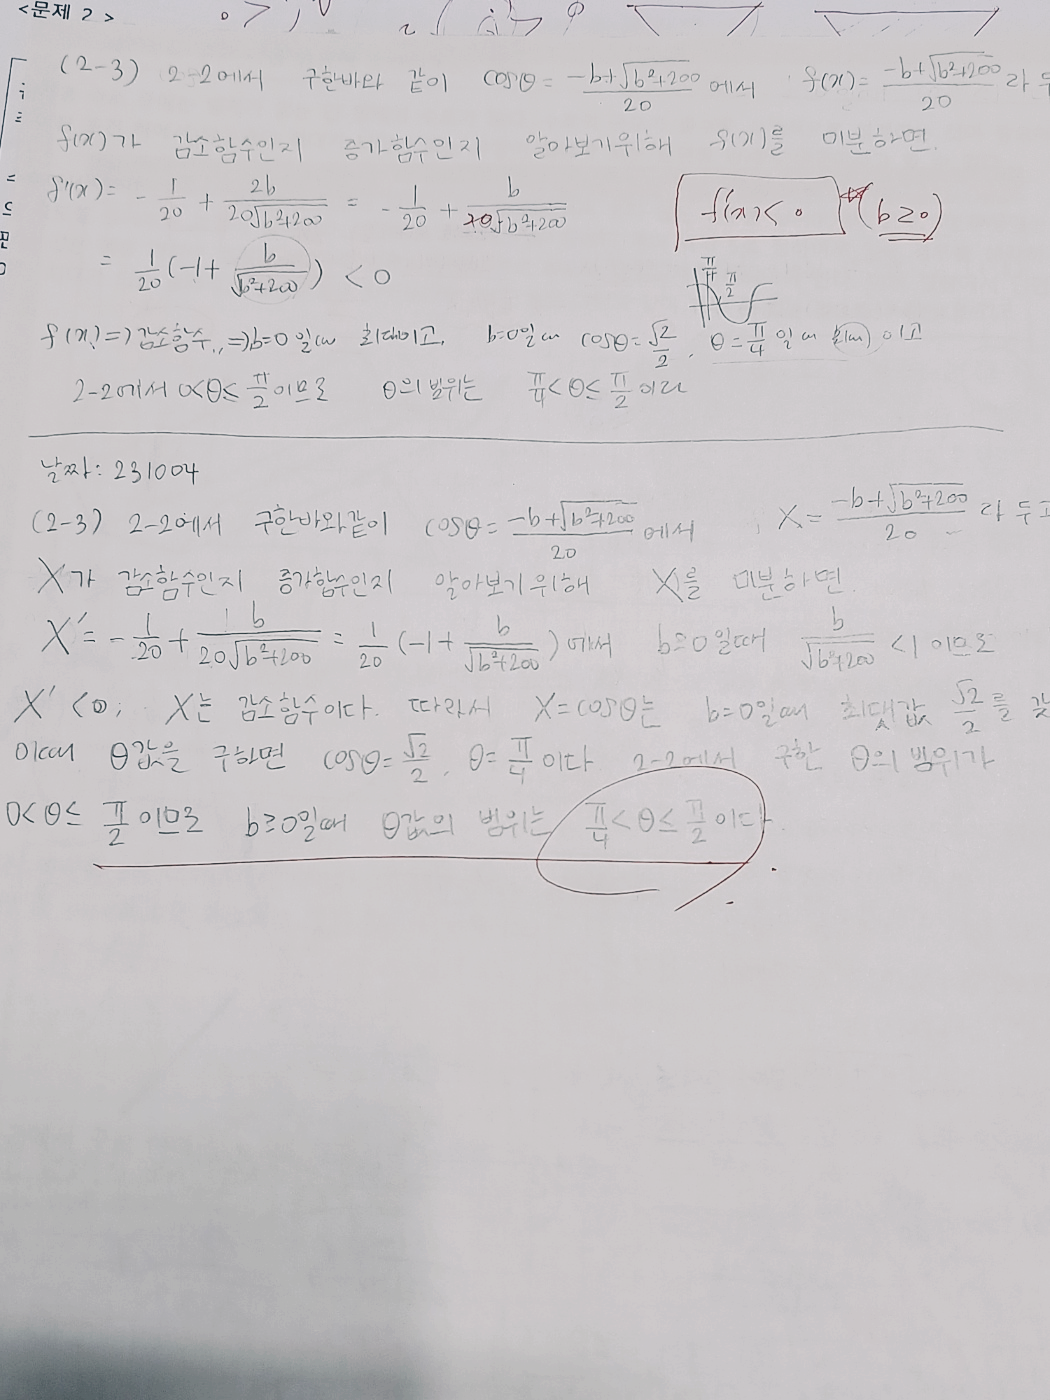 <문제 2>
(2-3) 2-2에서 구한바와 같이 cosθ = (-b+√(b²+200))/20 에서 f(x) = (-b+√(b²+200))/20 라 두
f(x)가 감소함수인지 증가함수인지 알아보기위해 f(x)를 미분하면.
f'(x) = -1/20 + 2b/(20√(b²+200)) = -1/20 + b/(20√(b²+200))
f'(x) < 0 (b≥0)
= 1/20(-1 + b/√(b²+200)) < 0
π/4 π/2
f(x) => 감소함수, => b=0일때 최대이고, b=0일때 cosθ = √2/2, θ = π/4 일때 이고
2-2에서 0<θ≤π/2이므로 θ의 범위는 π/4<θ≤π/2이다
날짜: 231004
(2-3) 2-2에서 구한바와같이 cosθ = (-b+√(b²+200))/20 에서, X = (-b+√(b²+200))/20 라 두고
X가 감소함수인지 증가함수인지 알아보기위해 X를 미분하면.
X' = -1/20 + b/(20√(b²+200)) = 1/20(-1 + b/√(b²+200))에서 b≥0일때 b/√(b²+200) <1 이므로
X' <0, X는 감소함수이다. 따라서 X=cosθ는 b=0일때 최댓값 √2/2를 갖
이때 θ값을 구하면 cosθ = √2/2, θ = π/4 이다 2-2에서 구한 θ의 범위가
0<θ≤ π/2 이므로 b≥0일때 θ값의 범위는 π/4<θ≤π/2이다.